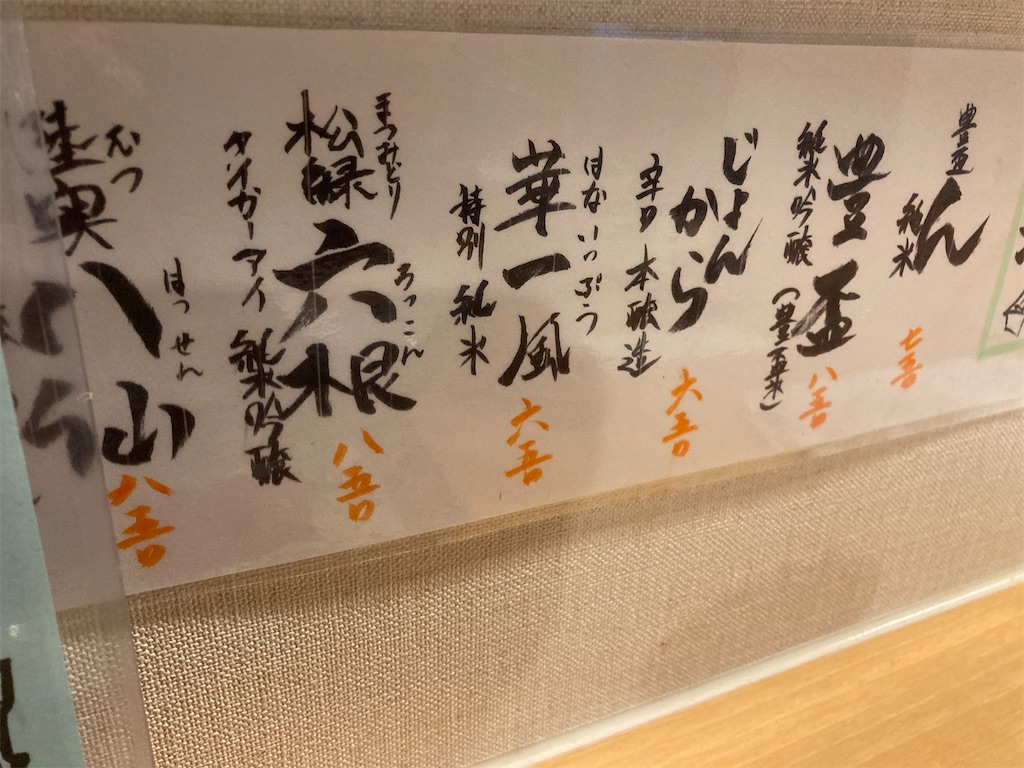 豊盃
ん
純米
七吾
豊盃
純米吟醸
(豊盃米)
八吾
じょん
から
辛口 本醸造
六吾
はないっぷう
華一風
特別 純米
六吾
まつみどり
松緑
ろっこん
六根
タイガーアイ 純米吟醸
八吾
むつ
陸奥
はっせん
八仙
八吾